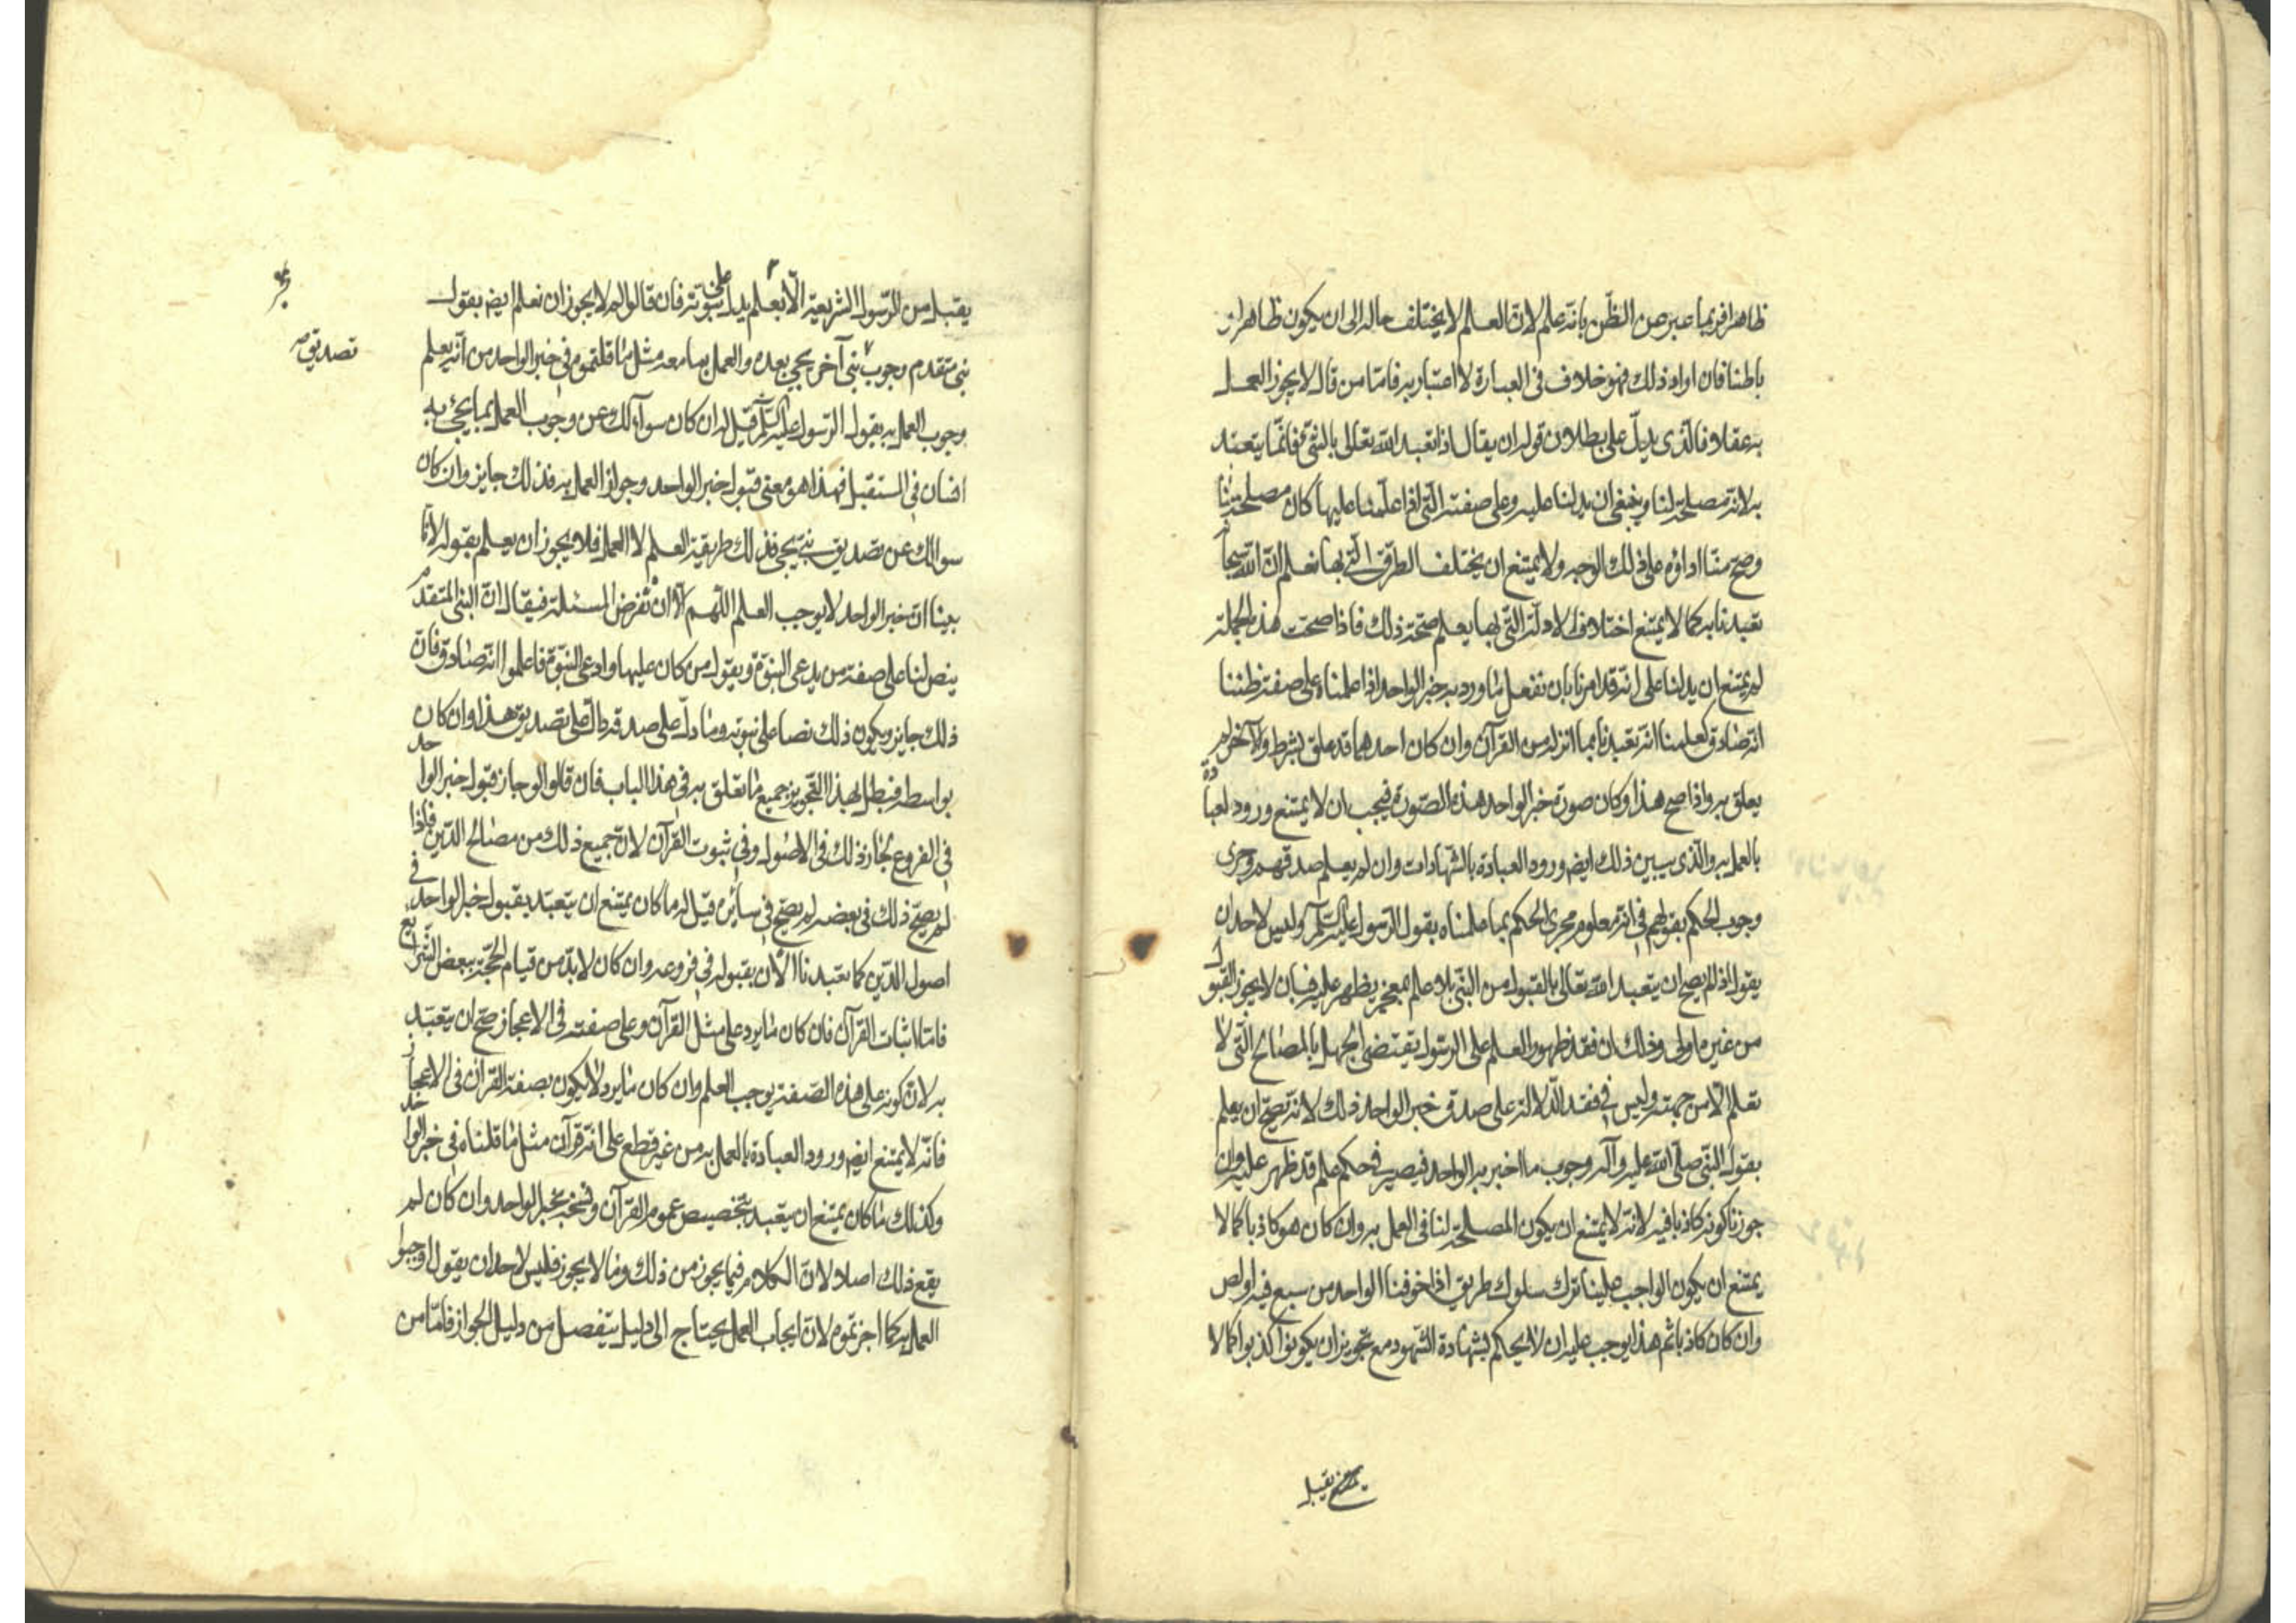 ظاهرا فربما عبر عن الظن بانه علم لان العلم لا يختلف حاله الى ان يكون ظاهرا و
باطنا فان اراد ذلك فهو خلاف فى العبارة لا اعتبار به فامّا من قال لا يجوز العمل
به عقلا فالذى يدلّ على بطلان قوله ان يقال اذا تعبد الله تعالى بالشئ فانّما يتعبّد
به لانه مصلحة لنا وينبغى ان يدلنا عليه وعلى صفته التى اذا علمنا عليها كان مصلحة لنا
وصح منّا اداؤه على ذلك الوجه ولا يمتنع ان يختلف الطرق التى بها نعلم ان الله سبحا
تعبدنا به كما لا يمتنع اختلاف الادلة التى بها يعلم صحة ذلك فاذا صحت هذه الجملة
لم يمتنع ان يدلنا على انه قد امرنا بان نفعل ما ورد به خبر الواحد اذا علمناه على صفة ظننا
انه صادق كعلمنا انه تعبدنا بما انزله من القرآن وان كان احدهما قد علق بشرط والآخر لم
يعلق به واذا صح هذا وكان صورة خبر الواحد هذه الصّورة فيجب ان لا يمتنع ورود لعبا دة
بالعمل به والذى يبين ذلك ايضم ورود العبادة بالشهادات وان لم يعلم صدقهم وجرى
وجوب الحكم بقولهم فى انه معلوم مجرى الحكم بما علمناه بقول الرسول عليه السلم وليس لاحد ان
يقول اذا لم يصح ان يتعبد الله تعالى بالقبول من النبّى بلا علم معجز يظهر عليه فبان لا يجوز القبو ل
من غيره اولى وذلك ان فقد ظهور العلم على الرسول يقتضى الجهل بالمصالح التى لا
تعلم الّا من جهته وليس فى فقد الدّلالة على صدق خبر الواحد ذلك لانه يصح ان يعلم
بقول النبّى صلّى الله عليه وآله وجوب ما اخبر به الواحد فيصير فى حكم علم قد ظهر عليه وان
جوزنا كونه كاذبا فيه لانه لا يمتنع ان يكون المصلحة لنا فى العمل به وان كان هو كاذبا كما لا
يمتنع ان يكون الواجب علينا ترك سلوك طريق اذا خوفنا الواحد من سبع فيه او لص
وان كان كاذبا ثم هذا يوجب عليه ان لا يحكم بشهادة الشهود مع تجويز ان يكونوا كذبوا كما لا
يمتنع يقبل
يقبل من الرّسول الشريعة الّا بعلم يدل على نبوته فان قالوا لم لا يجوز ان نعلم ايضم بقول
نبى متقدم وجوب نبى آخر يجئ بعده والعمل بما معه مثل ما قلتموه فى خبر الواحد من انّه يعلم
تصديق صح
وجوب العمل به بقول الرسول عليه السّلم قيل له ان كان سوآلك عن وجوب العمل بما يجئ به
انسان فى المستقبل فهذا هو معنى قبول خبر الواحد وجواز العمل به فذلك جايز وان كان
سوالك عن تصديق نبى يجئ فذلك طريقة العلم لا العمل فلا يجوز ان يعلم بقوله لانّا
بينا ان خبر الواحد لا يوجب العلم اللّهم الّا ان نفرض المسئلة فيقال ان النبى المتقدم
ينص لنا على صفة من يدعى النبوّة ويقول من كان عليها وادعى النبّوة فاعلموا انه صادق فان
ذلك جايز ويكون ذلك نصا على نبوته وما دلّ على صدقه دالّ على تصديق هذا وان كان
بواسطة فبطل بهذا التّجويز جميع ما تعلق به فى هذا الباب فان قالوا لو جاز قبول خبر الوا حد
فى الفروع لجاز ذلك فى الاصول وفى ثبوت القرآن لان جميع ذلك من مصالح الدّين فاذا
لم يصحّ ذلك فى بعضه لم يصحّ فى سائره قيل له ما كان يمتنع ان يتعبّد بقبول خبر الواحد فى
اصول الدّين كما تعبدنا الآن بقبوله فى فروعه وان كان لا بدّ من قيام الحجّة ببعض الشرا يع
فامّا اثبات القرآن فان كان ما يرد على مثل القرآن وعلى صفته فى الاعجاز صحّ ان يتعبّد
به لان كونه على هذه الصّفة يوجب العلم وان كان ما يرد لا يكون بصفة القرآن فى الاعجا ز
فانّه لا يمتنع ايضم ورود العبادة بالعمل به من غير قطع على انّه قرآن مثل ما قلناه فى خبر الوا حد
وكذلك ما كان يمتنع ان يتعبد بتخصيص عموم القرآن ونسخه بخبر الواحد وان كان لم
يقع ذلك اصلا لان الكلام فيما يجوز من ذلك وما لا يجوز فليس لاحد ان يقول اوجبوا
العمل به كما اجزتموه لان ايجاب العمل يحتاج الى دليل ينفصل من دليل الجواز فامّا من